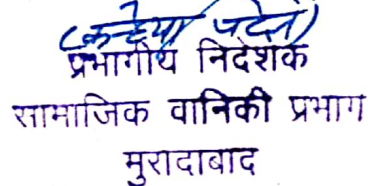 (कन्हैया पटेल)
प्रभागीय निदेशक
सामाजिक वानिकी प्रभाग
मुरादाबाद